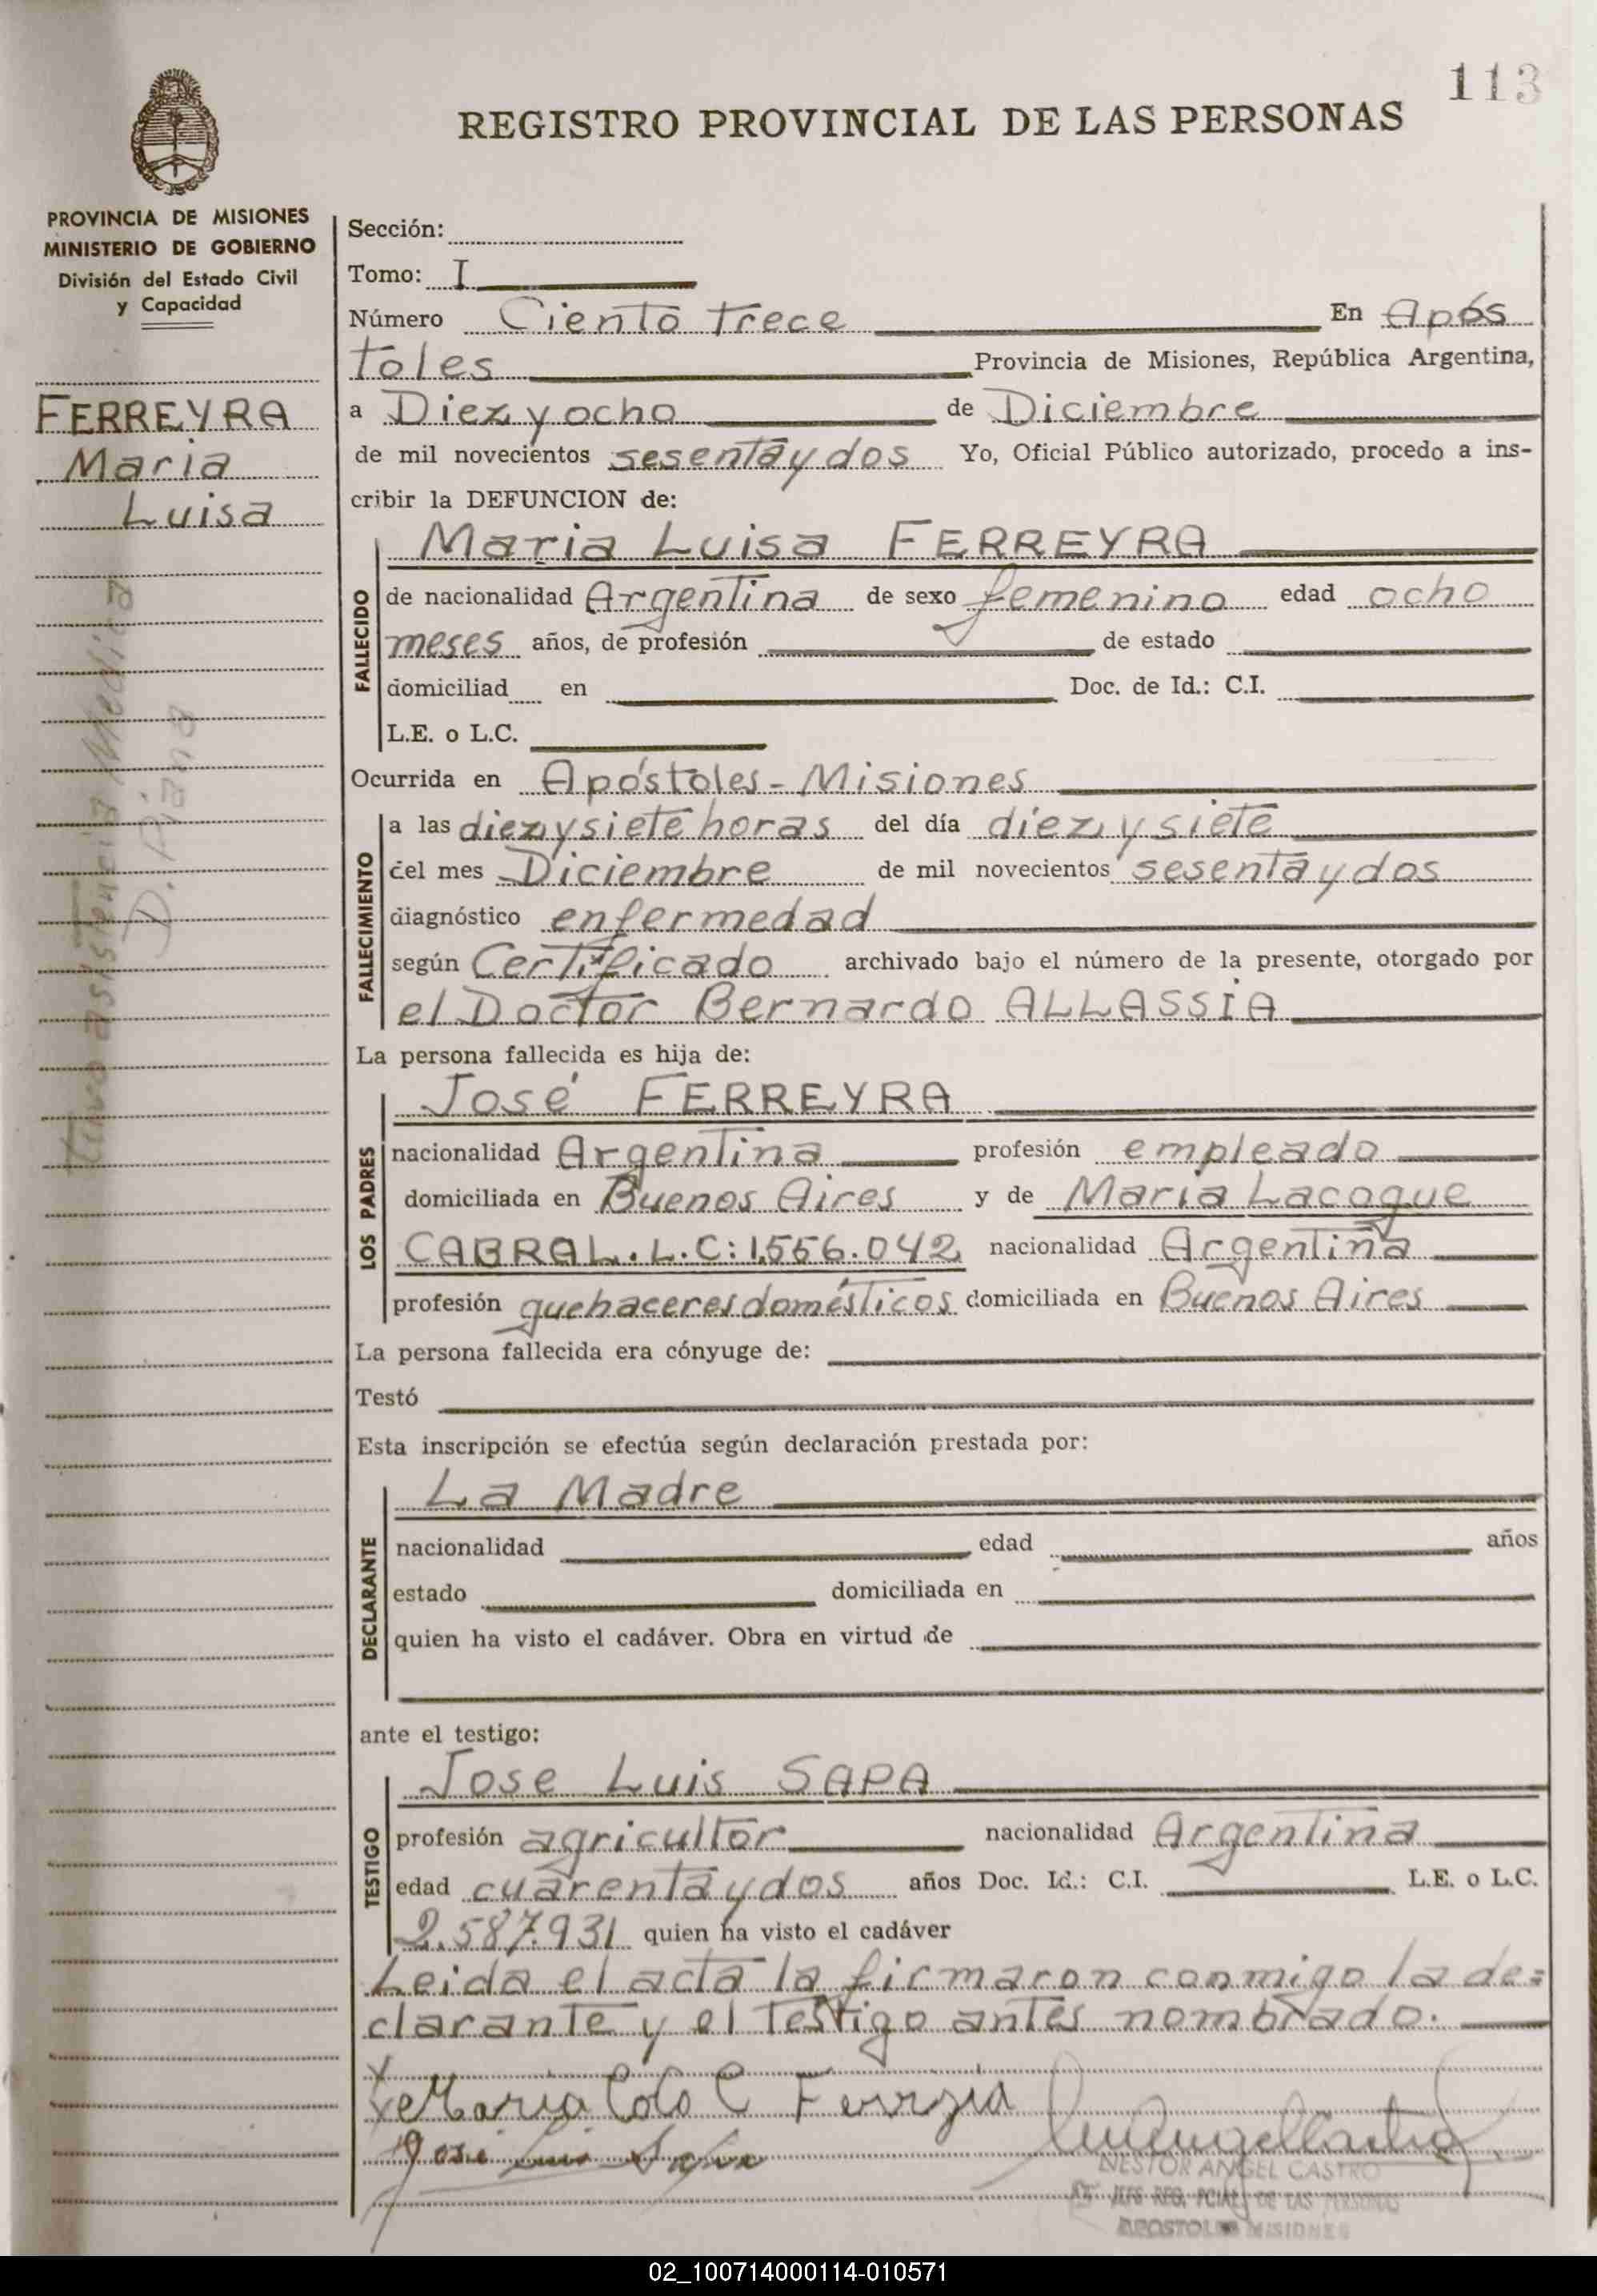 113
REGISTRO PROVINCIAL DE LAS PERSONAS
PROVINCIA DE MISIONES
MINISTERIO DE GOBIERNO
División del Estado Civil
y Capacidad
FERREYRA
Maria
Luisa
tuvo asistencia Medica
D. Piano
Sección:
Tomo: I
Número Ciento trece En Após
toles Provincia de Misiones, República Argentina,
a Diez y ocho de Diciembre
de mil novecientos sesenta y dos Yo, Oficial Público autorizado, procedo a ins-
cribir la DEFUNCION de:
FALLECIDO
Maria Luisa FERREYRA
de nacionalidad Argentina de sexo femenino edad ocho
meses años, de profesión de estado
domiciliad en Doc. de Id.: C.I.
L.E. o L.C.
Ocurrida en Apóstoles - Misiones
FALLECIMIENTO
a las diez y siete horas del día diez y siete
del mes Diciembre de mil novecientos sesenta y dos
diagnóstico enfermedad
según Certificado archivado bajo el número de la presente, otorgado por
el Doctor Bernardo ALLASSIA
La persona fallecida es hija de:
LOS PADRES
José FERREYRA
nacionalidad Argentina profesión empleado
domiciliada en Buenos Aires y de Maria Lacoque
CABRAL. L.C: 1.556.042 nacionalidad Argentina
profesión quehaceres domésticos domiciliada en Buenos Aires
La persona fallecida era cónyuge de:
Testó
Esta inscripción se efectúa según declaración prestada por:
DECLARANTE
La Madre
nacionalidad edad años
estado domiciliada en
quien ha visto el cadáver. Obra en virtud de
ante el testigo:
TESTIGO
Jose Luis SAPA
profesión agricultor nacionalidad Argentina
edad cuarenta y dos años Doc. Id.: C.I. L.E. o L.C.
2.587.931 quien ha visto el cadáver
Leida el acta la firmaron conmigo la de=
clarante y el testigo antes nombrado.
Maria C
Jose Luis Sapa
NESTOR ANGEL CASTRO
JEFE REG. PCIAL. DE LAS PERSONAS
APOSTOLES MISIONES
02_100714000114-010571